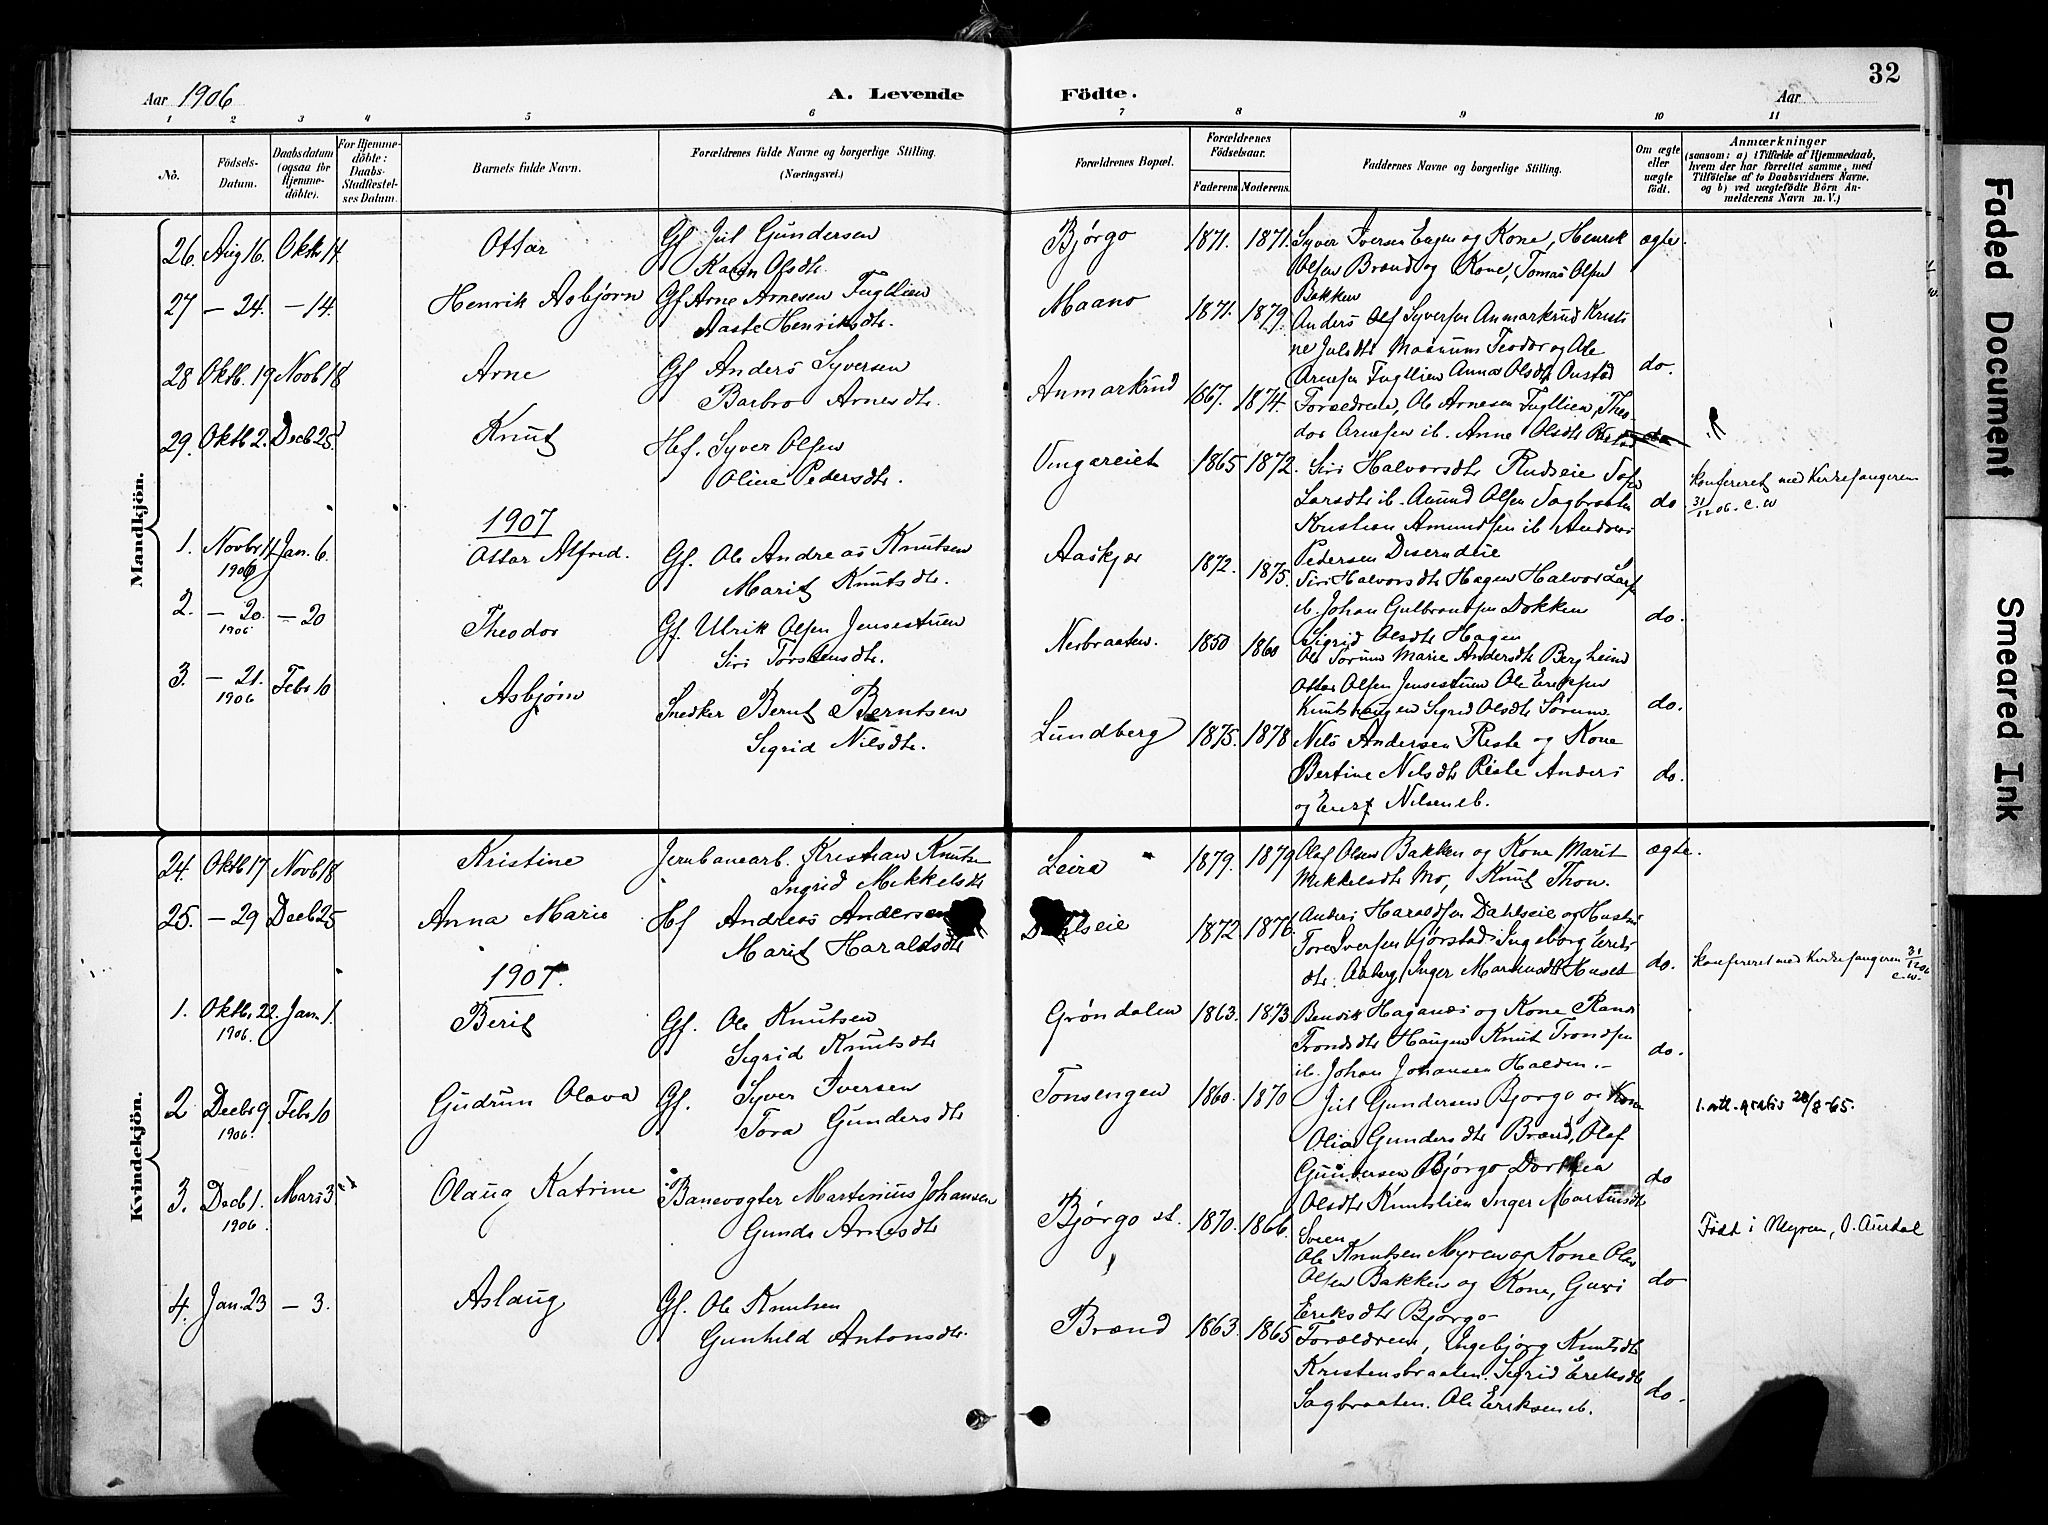 32
Aar 1906 A. Levende Födte. Aar
1 2 3 4 5 6 7 8 9 10 11
No. Födsels-Datum. Daabsdatum (ogsaa for Hjemme-döbte). For Hjemme-döbte: Daabs-Stadfæstel-ses Datum. Barnets fulde Navn. Forældrenes fulde Navne og borgerlige Stilling. (Næringsvei.) Forældrenes Bopæl. Forældrenes Födselsaar. Faderens Moderens. Faddernes Navne og borgerlige Stilling. Om ægte eller uægte födt. Anmærkninger (saasom: a) i Tilfælde af Hjemmedaab, hvem der har forrettet samme, med Tilföielse af to Daabsvidners Navne, og b) ved uægtefödte Börn An-melderens Navn m. V.)
Mandkjön.
26. Aug 16. Oktb 14 Ottar Gf Juil Gundersen Bjørgo 1871. 1871. Syver Iversen Hagen og Kone, Henrik ægte.
Karin Olsdt. Olsen Brænd og Kone, Tomas Olsen
Bakken
27 - 24. - 14. Henrik Asbjørn Gf Arne Arnesen Fugllien Maano 1871. 1879.
Aaste Henriksdt. Anders Olaf Syversen Anmarkrud Kristi
ne Julsdt Magnus Teodor og Ole do.
28 Oktb. 19 Novb 18 Arne Gf Anders Syversen Anmarkrud 1867. 1874. Arnesen Fugllien Anna Olsdt
Barbro Arnesdt. Forældrene, Ole Arnesen Fugllien, Theo
dor Arnesen ib. Anne Olsdt
29. Oktb 2. Decb 25 Knut Hf. Syver Olsen Ungareiet 1865 1872. Siri Halvorsdt Rudseie do Konfereret med Kirkesangeren
Oline Pedersdt. Larsdt ib. Amund Olsen Sagbraaten 31/12 06. C. W
Kristian Amundsen ib Andreas
Pedersen
1907
1. Novbr 11 1906 Jan. 6. Ottar Alfred. Gf. Ole Andreas Knutsen Aaskjær 1872. 1875.
Marit Knutsdt. Siri Halvorsdt Hagen Halvor Lars
ib. Johan Gulbrandsen Dokken do.
Sigrid Olsdt Hagen
2. - 20. 1906 - 20 Theodor Gf. Ulrik Olsen Jensestuen Nerbraaten. 1850 1860
Siri Torstensdt. Ole Sørum Marie Andersdt Bergheim
Ottar Olsen Jensestuen Ole Eriksen
Knutshaugen Sigrid Olsdt Sørum do.
3. - 21. 1906 Febr 10 Asbjørn Snedker Bernt Berntsen Lundberg 1875. 1878 Nils Andersen Riste og Kone
Sigrid Nilsdt. Bertine Nilsdt Riste Anders do.
og Nilsen ib.
Kvindekjön.
24. Oktb 17 Novb 18 Kristine Jernbanearb. Kristian Knuts Leira 1879. 1879 Olaf Olsen Bakken og Kone Marit ægte.
Ingrid Mikkelsdt Mikkelsdt Mo, Knut Thon.
25. - 29 Decb 25 Anna Marie Hf Andreas Andersen Dahlseie 1872 1876. Anders Haraldsen Dahlseie og Hustru
Marit Haraldsdt Tore Iversen Kjørstad Ingeborg Eriks
dt. Aaberg Inger Martinsdt Huset do. Konfereret med Kirkesangeren 31/12 06
C. W.
1907
1. Oktbr 22. 1906. Jan. 1. Berit Gf. Ole Knutsen Grøndalen 1863. 1873 Bendik Haganæs og Kone Randi
Sigrid Knutsdt Trondsdt Haugen Knut Trondsen do.
ib. Johan Johansen Halden.
2 Decbr 9 1906 Febr 10 Gudrun Olava Gf. Syver Iversen Tonsengen 1860. 1870 Juil Gundersen Bjørgo og Kone 1. att. gratis 28/8-65.
Tora Gundersdt Olia Gundersdt Brænd, Olaf
Gundersen Bjørgo Dorthea do
Olsdt Knutslien Inger Martinsdt
Sveen
3. Decb 1. 1906 Mars 3 Olaug Katrine Banevogter Martinius Johansen Bjørgo st. 1870. 1866. Født i Myren, Ø. Aurdal
Gunda Arnesdt Ole Knutsen Myren og Kone Olav
Olsen Bakken og Kone, Guri do
Eriksdt Bjørgo
4. Jan. 23 - 3. Aslaug Gf. Ole Knutsen Brænd 1863. 1865 Forældrene, Ingebjørg Knutsdt
Gunhild Antonsdt. Kristensbraaten. Sigrid Eriksdt
Sagbraaten. Ole Eriksen ib. do.
Faded Document
Smeared Ink